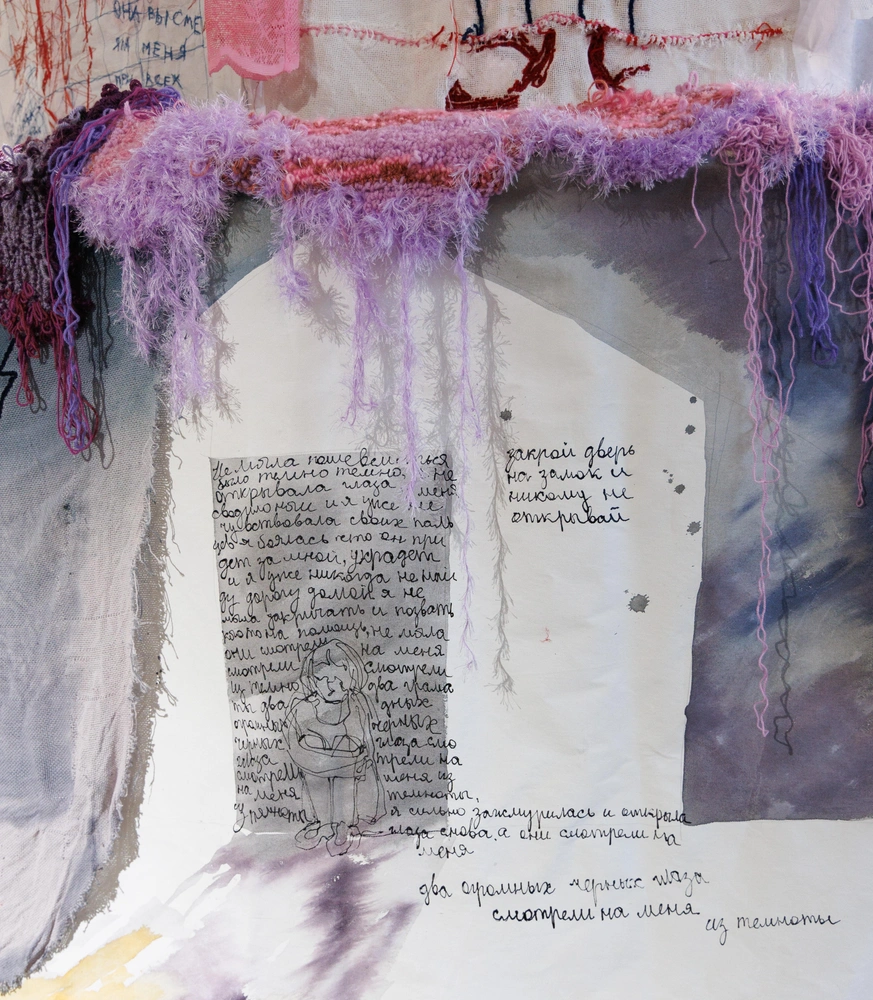 ОНА ВЫСМЕ
ЯЛА МЕНЯ
ПРИ ВСЕХ
закрой дверь
на замок и
никому не
открывай
Не могла пошевелиться
было темно темно, я не
открывала глаза меня
сводило и я уже не
чувствовала своих паль
цев я боялась что он при
дет за мной, украдет
и я уже никогда не най
ду дорогу домой я не
могла закричать и позвать
кого на помощь, не могла
они смотрели на меня
смотрели смотрели
из темно два грома
ты два дных
огромных черных
черных глаза смо
глаза трели на
смотрели меня из
на меня темноты,
из темноты я сильно зажмурилась и открыла
глаза снова, а они смотрели на
меня
два огромных черных глаза
смотрели на меня
из темноты